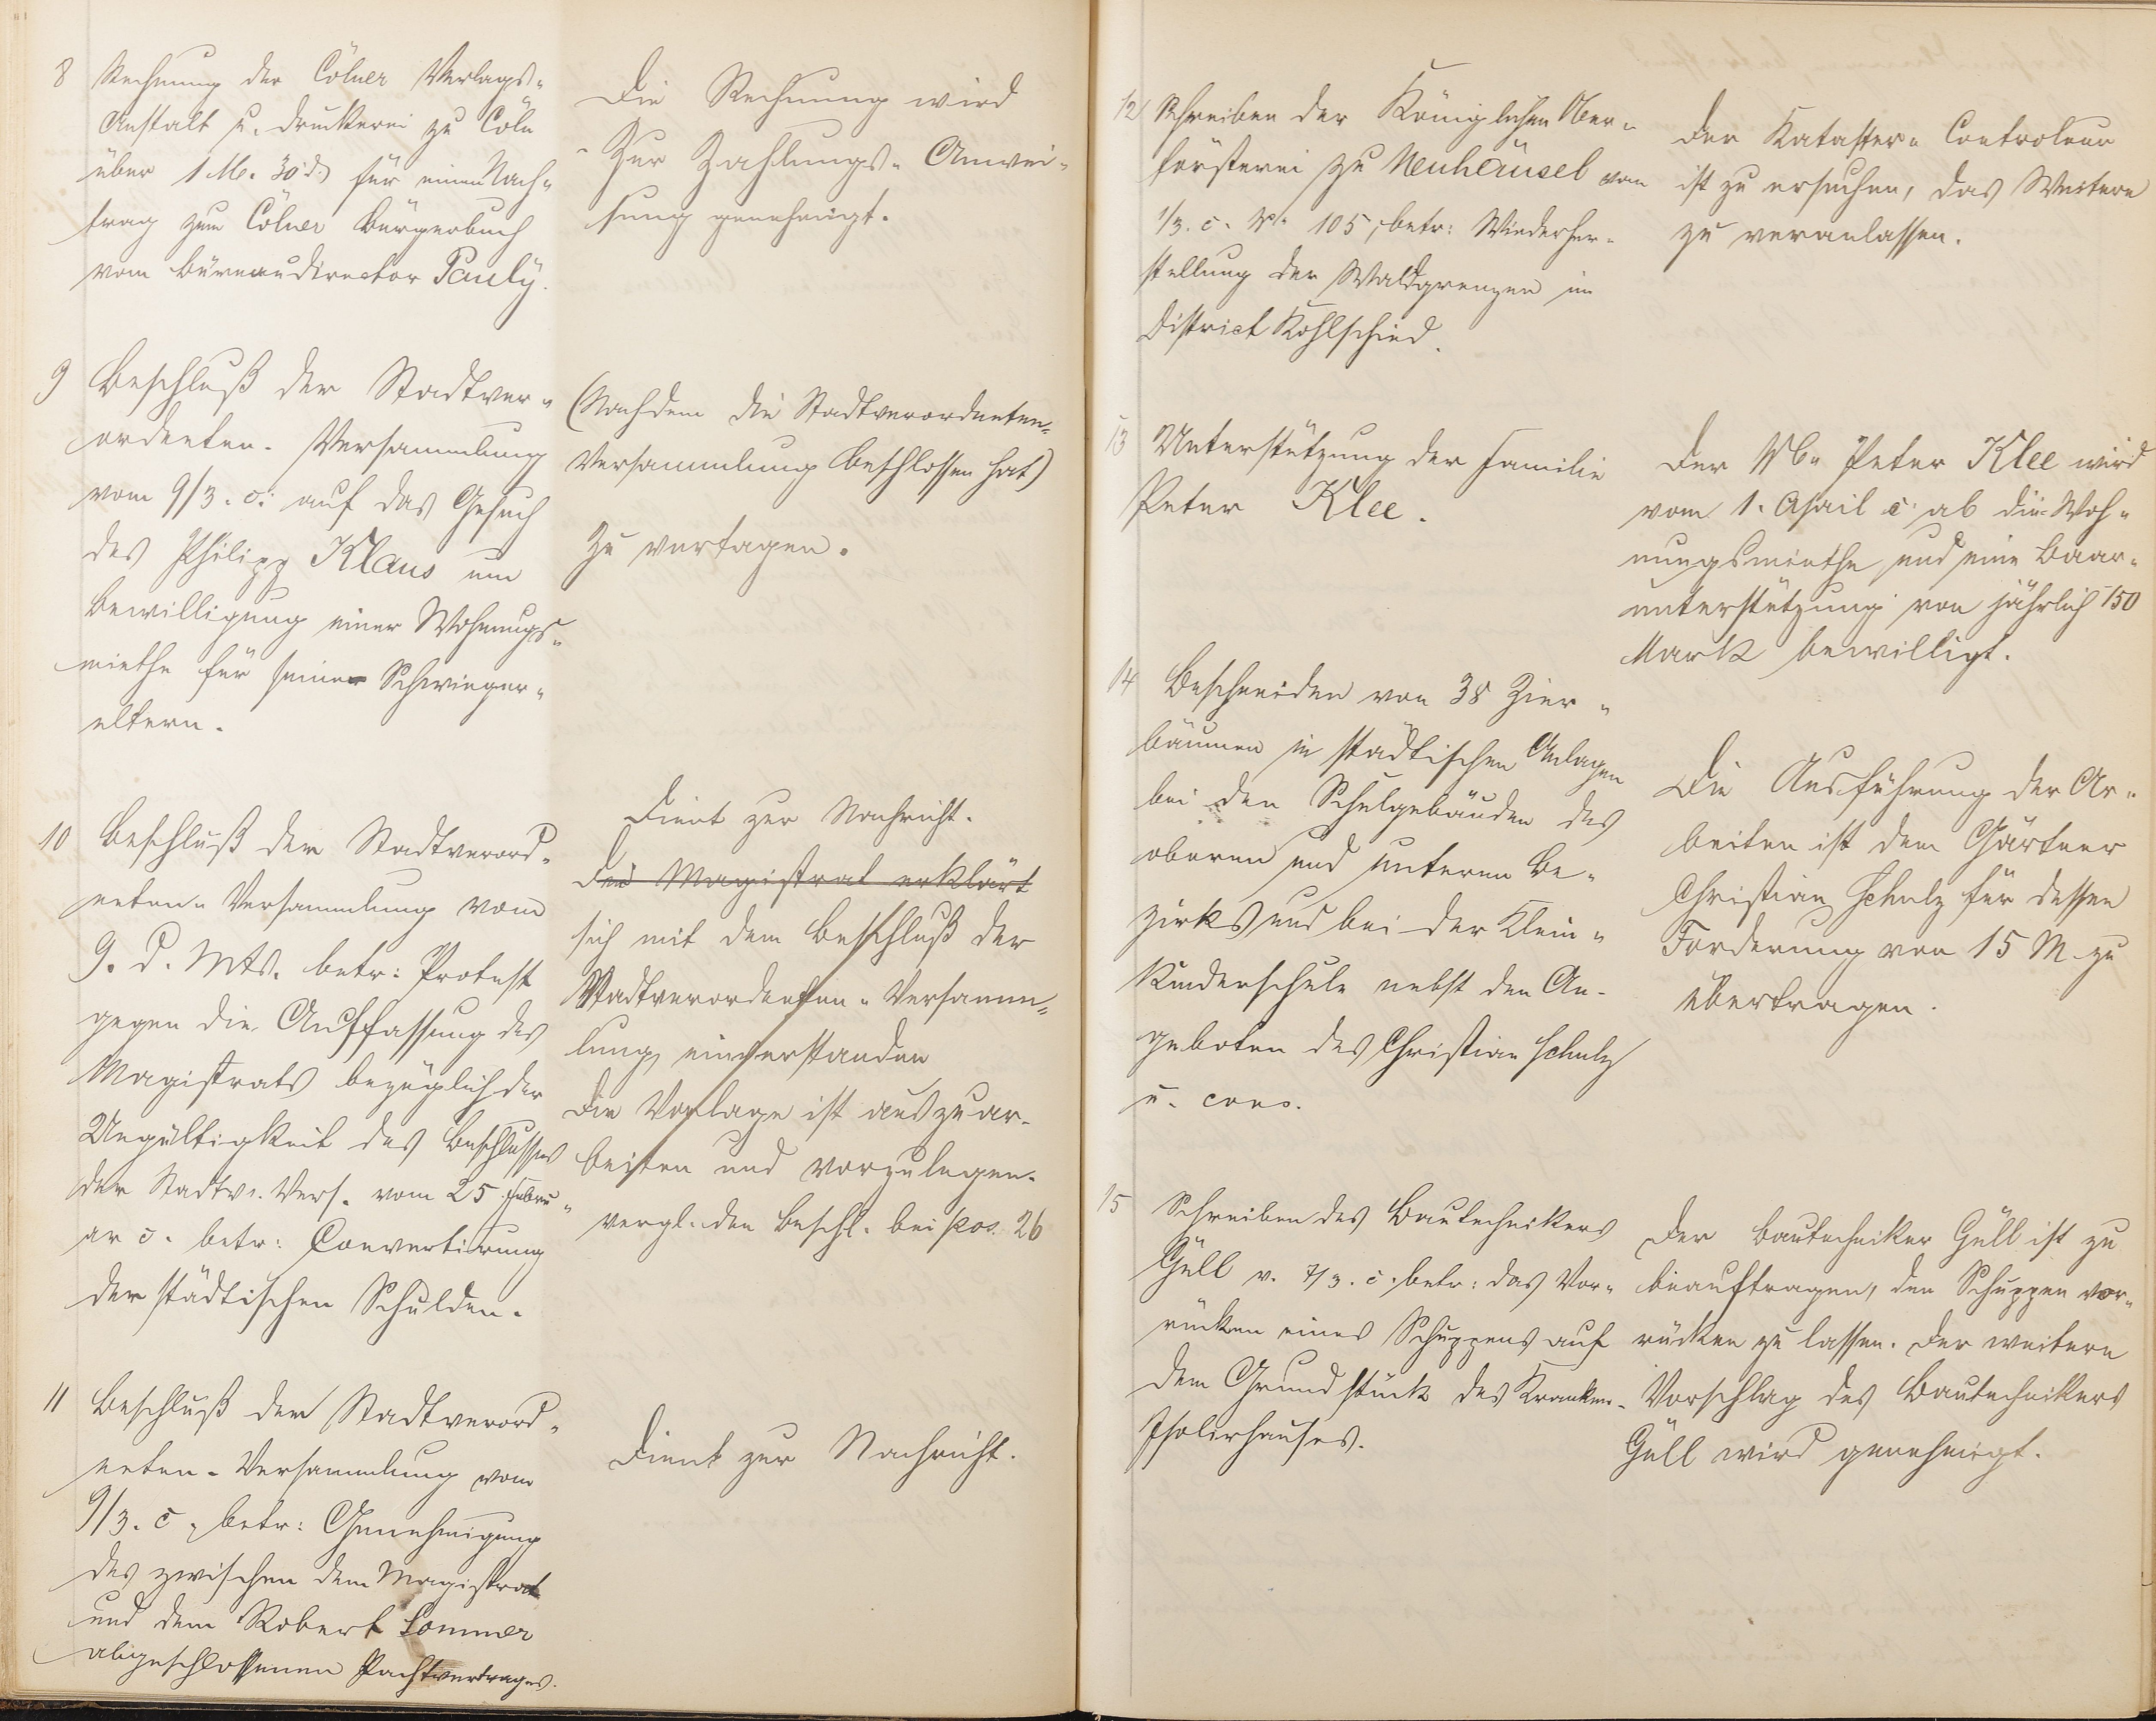 8 Rechnung der Cölner Verlags-
Anstalt u. Druckerei zu Cöln
über 1 M. 30 d. für einen Nach-
trag zum Cölner Bürgerbuch
vom Büreaudirector Pauly.
Die Rechnung wird
Zur Zahlungs-Anwei-
sung genehmigt.
9 Beschluß der Stadtver-
ordneten-Versammlung
vom 9/3. c. auf das Gesuch
des Philipp Klaus um
Bewilligung einer Wohnungs-
miethe für seine Schwieger-
eltern.
(Nachdem die Stadtverordneten-
Versammlung beschlossen hat)
Zu vertagen.
10 Beschluß der Stadtverord-
neten-Versammlung vom
9. d. Mts. betr: Protest
gegen die Auffassung des
Magistrats bezüglich der
Ungültigkeit des Beschlusses
der Stadtv. Vers. vom 25. Febru-
ar c. betr: Convertirung
der städtischen Schulden.
Dient zur Nachricht.
Der Magistrat erklärt
sich mit dem Beschluß der
Stadtverordneten-Versamm-
lung einverstanden
Die Vorlage ist auszuar-
beiten und vorzulegen.
vergl. den Beschl. bei pos. 26
11 Beschluß der Stadtverord-
neten-Versammlung vom
9/3. c., betr: Genehmigung
des zwischen dem Magistrat
und dem Robert Sommer
abgeschlossenen Pachtvertrages.
Dient zur Nachricht.
12/ Schreiben der Königlichen Ober-
försterei zu Neuhäusel vom
1/3. c. No. 105, betr: Wiederher-
stellung der Waldgrenzen im
District Kohlschied.
Der Kataster-Controleur
ist zu ersuchen, das Weitere
zu veranlassen.
13 Unterstützung der Familie
Peter Klee.
Der Wb. Peter Klee wird
vom 1. April c. ab die Woh-
nungsmiethe und eine Baar-
unterstützung von jährlich 150
Mark bewilligt.
14 Beschneiden von 38 Zier-
bäumen in städtischen Anlagen
bei den Schulgebäuden des
oberen und unteren Be-
zirks und bei der Klein-
Kinderschule nebst den An-
geboten des Christian Schulz
u. cons.
Die Ausführung der Ar-
beiten ist dem Gärtner
Christian Schulz für dessen
Forderung von 15 M. zu
übertragen.
15 Schreiben des Bautechnikers
Güll v. 7/3. c. betr: das Vor-
rücken eines Schuppens auf
dem Grundstück des Kranken-
Isolirhauses.
Der Bautechniker Güll ist zu
beauftragen, den Schuppen vor-
rücken zu lassen. Der weitere
Vorschlag des Bautechnikers
Güll wird genehmigt.